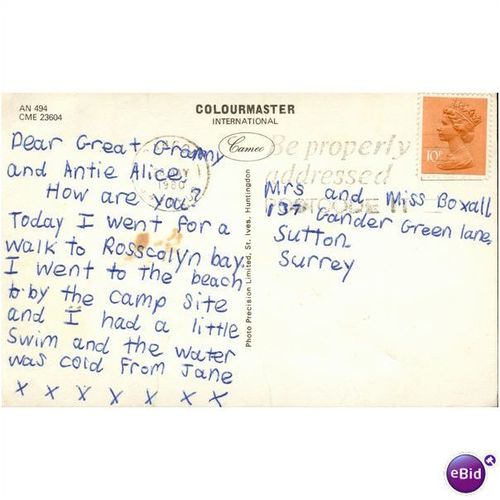 AN 494
CME 23604
COLOURMASTER
INTERNATIONAL
Cameo
Dear Great Granny
and Antie Alice,
How are you?
Today I went for a
walk to Rosscolyn bay.
I went to the beach
by the camp site
and I had a little
Swim and the water
was cold From Jane
x x x x x x x
Photo Precision Limited, St. Ives, Huntingdon
1980
Be properly
addressed
POSTCODE IT
10P
Mrs and Miss Boxall
Gander Green lane,
Sutton
Surrey
eBid